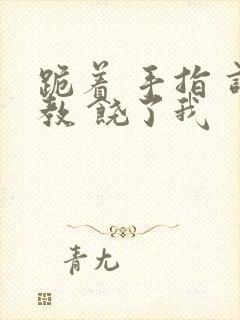 跪着 手指
教 饶了我
青尢